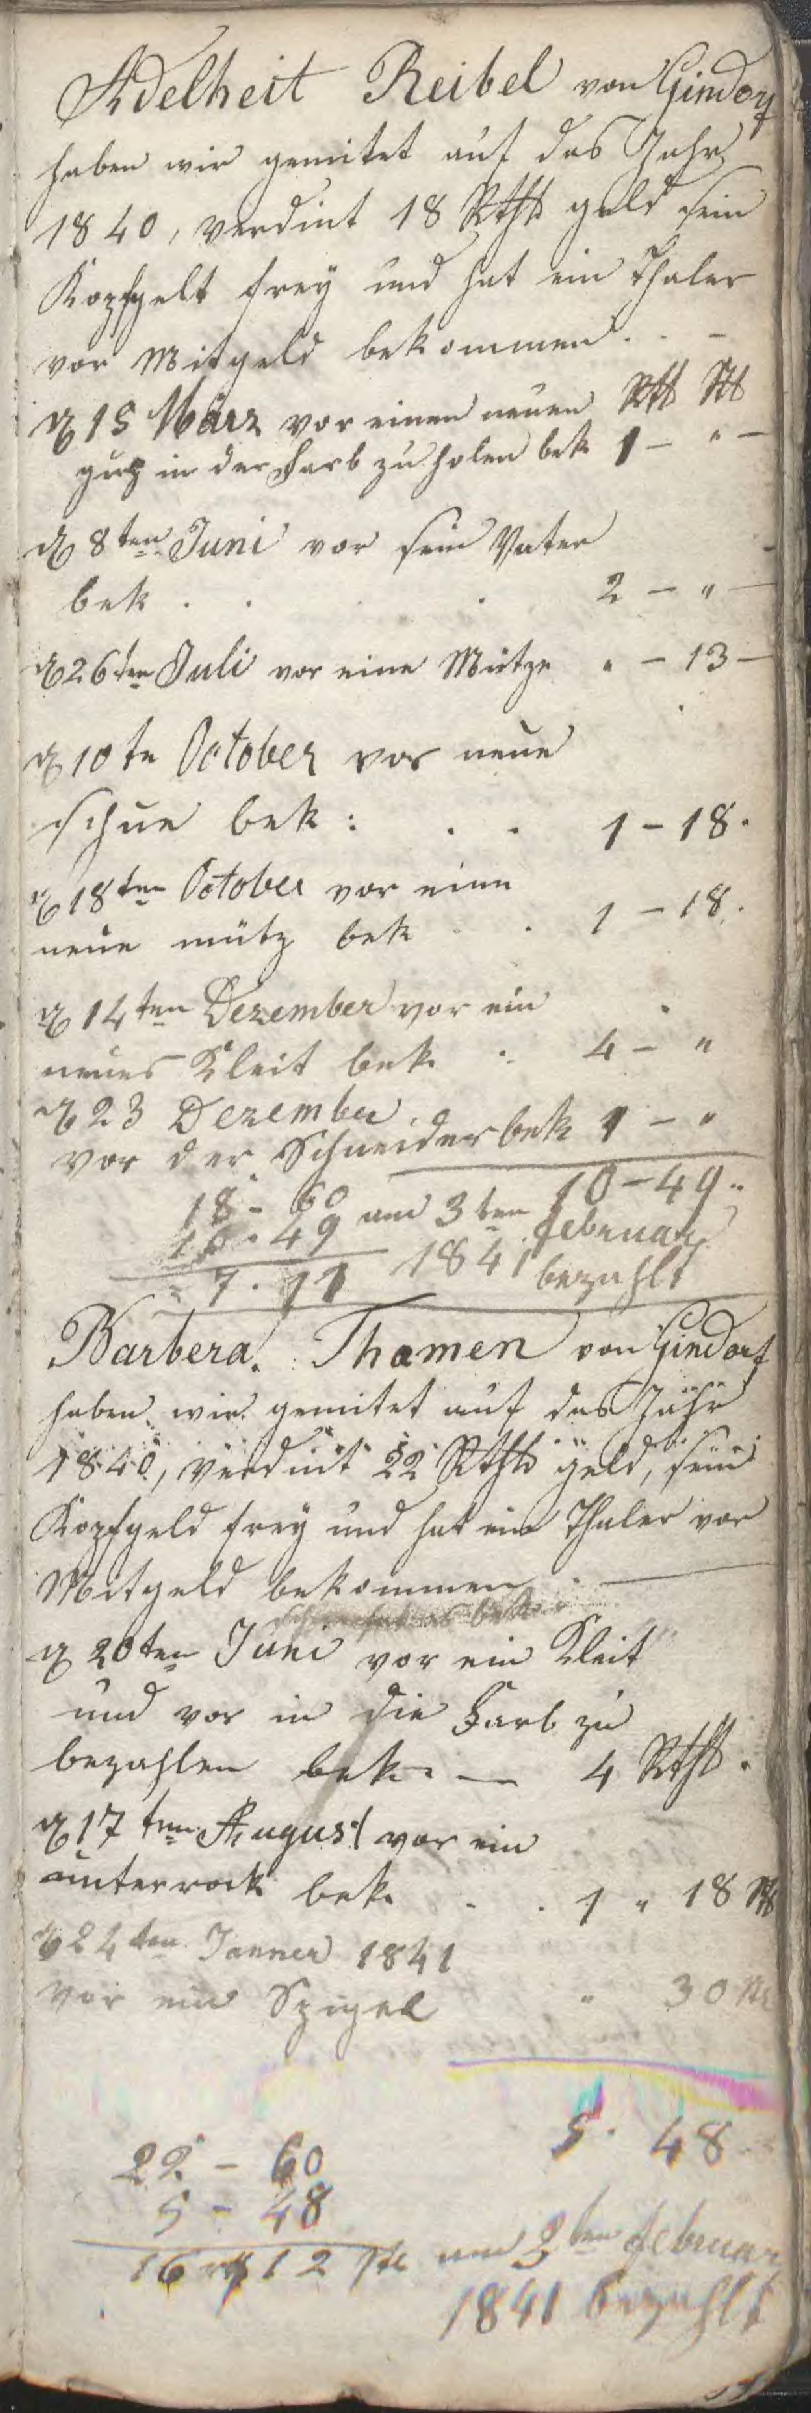 Adelheit Reibel von Gindorf
haben wir gemitet auf das Jahr
1840, verdint 18 Rthlr geld sein
Kopfgelt frey und hat ein Thaler
vor Mitgeld bekommen . . –
d 15 März vor einen neuen Rthlr Str
in der Farb zu holen bek 1 – " –
d 8ten Juni vor sein Vater
bek . . . 2 – " –
d 26ten Juli vor eine Mütze " – 13 –
d 10te October vor neue
schue bek : . . 1 – 18 .
d 18ten October vor eine
neue mütz bek . 1 – 18 .
d 14ten Dezember vor ein
neues Kleit bek . 4 – "
d 23 Dezember
vor der Schneider bek 1 – "
10 – 49 .
18 – 60 am 3ten februar
10 . 49 1841 bezahlt
7 . 11
Barbera Thomen von Gindorf
haben wir gemitet auf das Jahr
1840, verdint 22 Rthlr geld, sein
Kopfgeld frey und hat ein Thaler vor
Mitgeld bekommen . —
d 20ten Juni vor ein Kleit
und vor in die Farb zu
bezahlen bek. — 4 Rthlr .
d 17ten August vor ein
unterrock bek. . . 1 " 18 Str
d 24ten Janner 1841
vor ein Spigel " 30 Str
5 . 48
22 – 60
5 – 48
16 rt 12 str am 3ten februar
1841 bezahlt